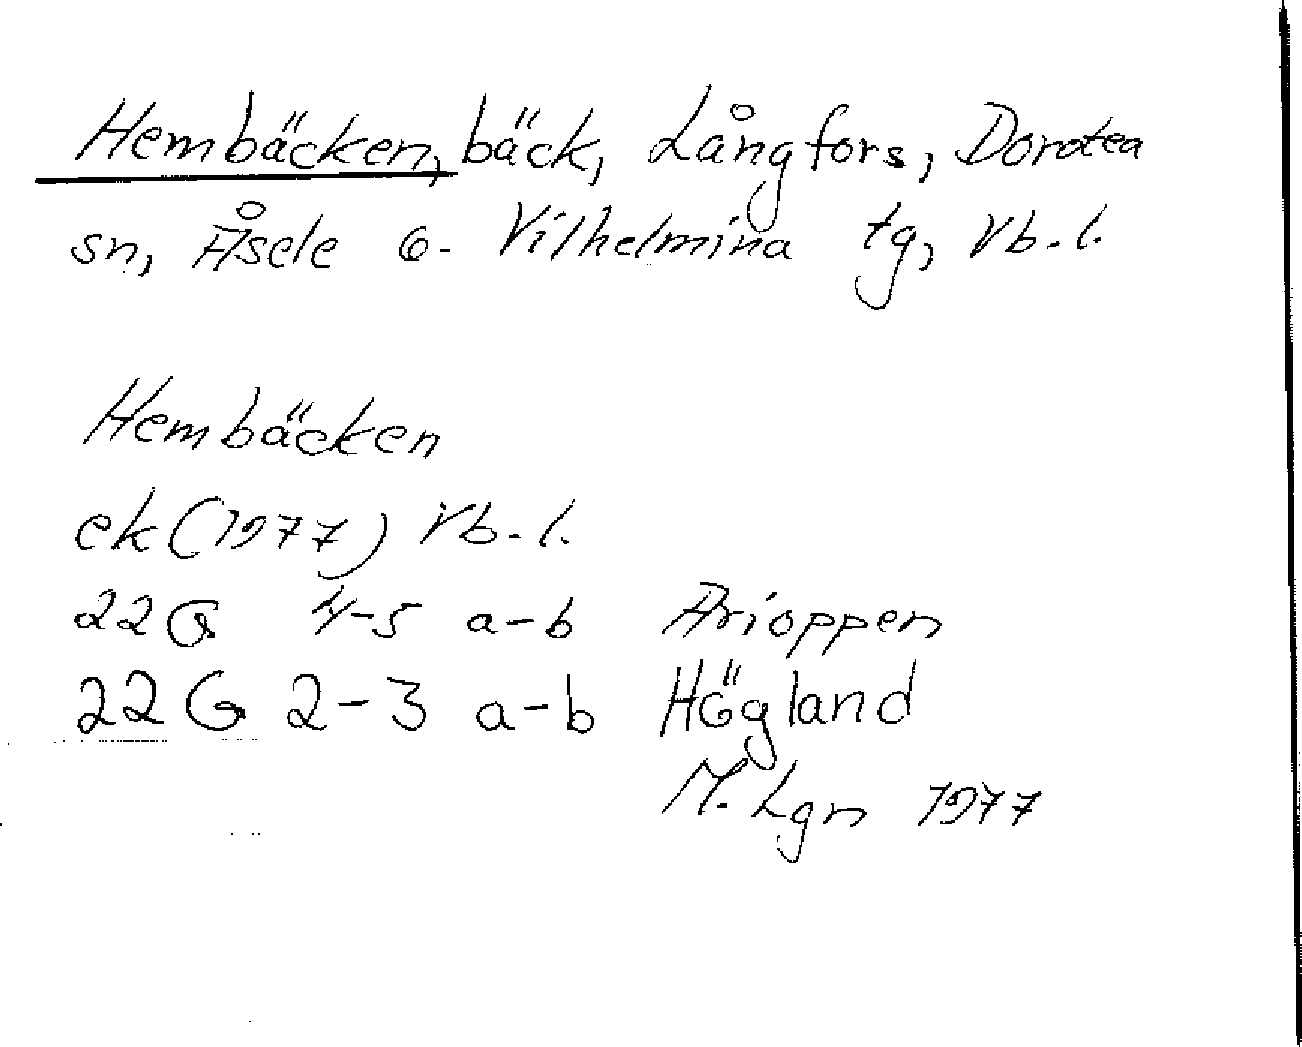 Hembäcken, bäck, Långfors, Dorotea
sn, Åsele o. Vilhelmina tg, Vb.l.
Hembäcken
ek (1977) Vb.l.
22G 4-5 a-b Arioppen
22G 2-3 a-b Högland
M. Lgn 1977